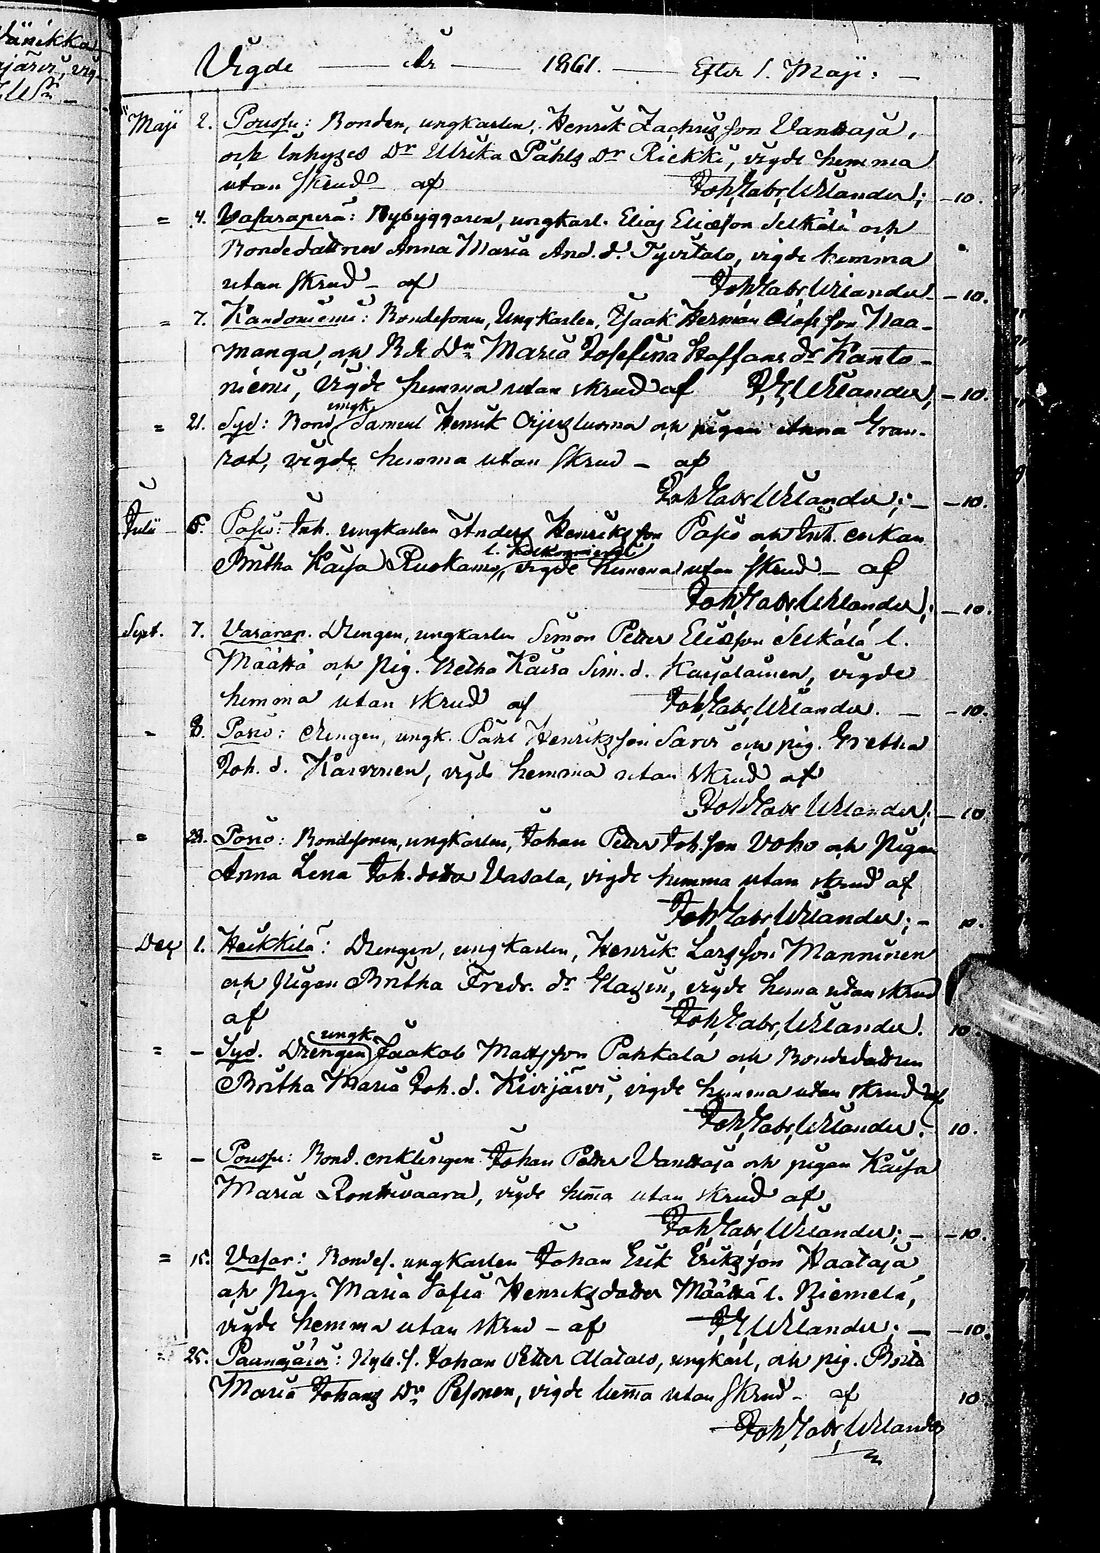 Vigde — År — 1861. — Efter 1. Maji: —
Maji 2. Poussu: Bonden, ungkarlen, Henrik Zachrisson Vanttaja,
och Inhyses Dr Ulrika Påhls Dr Riekki, vigde hemma
utan skrud af Joh, Gabr, Wislander; — 10.
= 4. Vasaraperä: Nybyggaren, ungkarl. Elias Eliasson Selkälä och
Bondedottren Anna Maria And. d. Tyvitalo, vigde hemma
utan skrud — af Joh, Gabr, Wislander — 10.
= 7. Kandoniemi: Bondesonen, Ungkarlen, Isaak Herman Olofsson Haa-
manga, och B. dr Dn Maria Josefina Staffans dr Kanto-
niemi, vigde hemma utan skrud af J, G, Wislander, — 10.
= 21. Syd: Bond, ungk. Samuel Henrik och pigan Anna Gran-
rot, vigde hemma utan skrud — af
Joh, Gabr, Wislander; — 10.
Julii 6. Posio: Inh. ungkarlen Anders Henriksson Posio och Inh. enkan
Britha Kaisa Ruokamo, l. vigde hemma utan skrud — af
Joh, Gabr, Wislander; — 10.
Sept. 7. Vasarap. Drengen, ungkarlen Simon Petter Eliasson Selkälä l.
Määttä och pig. Gretha Kaisa Sim. d. Karjalainen, vigde
hemma utan skrud af Joh, Gabr, Wislander. — 10.
" 8. Posio: drengen, ungk. Påhl Henriksson Sarvi och pig. Gretha
Joh. d. Karvonen, vigde hemma utan skrud af
Joh, Gabr, Wislander; — 10
= 28. Posio: Bondesonen, ungkarlen, Johan Petter Joh. son Voho och Pigan
Anna Lena Joh. dotter Vasala, vigde hemma utan skrud af
Joh, Gabr, Wislander; — 10.
Dec 1. Heikkilä: Drengen, ungkarlen, Henrik Larsson Manninen
och Pigan Britha Fredr. dr Glasen, vigde hemma utan skrud
af Joh, Gabr, Wislander. 10.
= — Syd. Drengen ungk. Jaakob Mattsson Pahkala och Bondedottren
Britha Maria Joh. d. Kivijärvi, vigde hemma utan skrud af
Joh, Gabr, Wislander. 10.
= — Poussu: Bond. enklingen Johan Petter Vanttaja och pigan Kaisa
Maria Ronttivaara, vigde hemma utan skrud af
Joh, Gabr, Wislander; — 10.
= 15. Vasar: Bondes. ungkarlen Johan Erik Eriksson Haataja
och Pig. Maria Sofia Henriksdotter Määttä l. Niemelä,
vigde hemma utan skrud — af J, G, Wislander; — 10.
25. Paunajärvi: Nyb. s. Johan Petter Alatalo, ungkarl, och pig. Brita
Maria Johans Dr Pesonen, vigde hemma utan skrud — af 10.
Joh, Gabr, Wislander